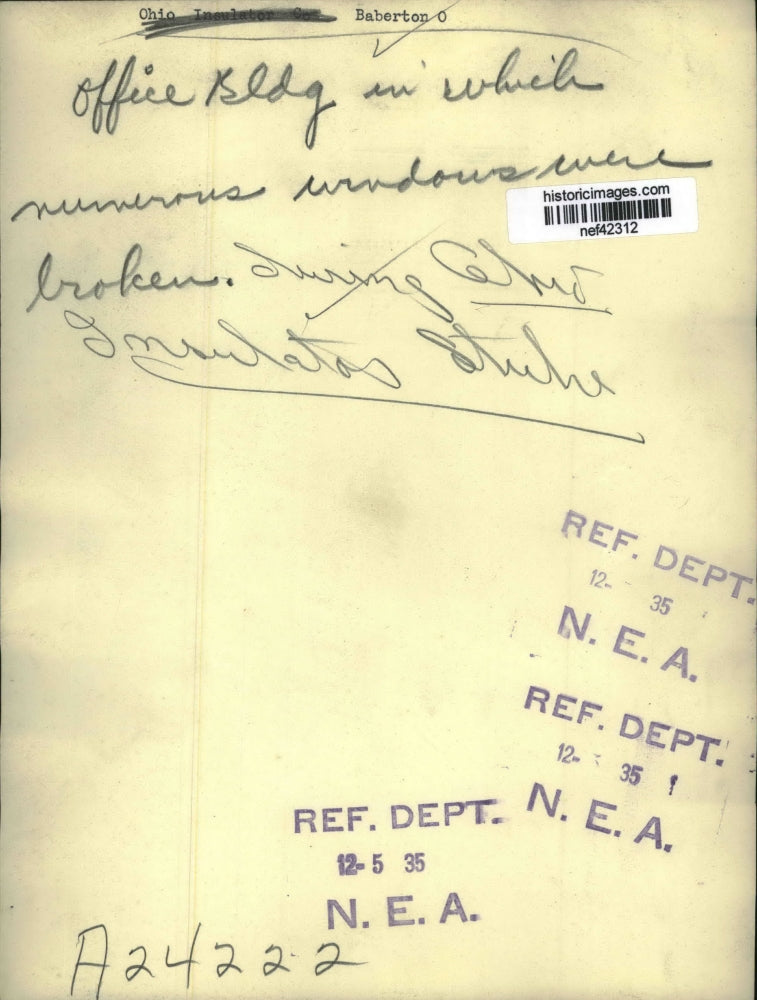 Ohio Insulator Co Baberton O
office Bldg in which
numerous windows were
historicimages.com
nef42312
broken. during Ohio
Insulator Strike
REF. DEPT.
12- 35
N. E. A.
REF. DEPT.
12- 35
N. E. A.
REF. DEPT.
12-5 35
N. E. A.
A24222